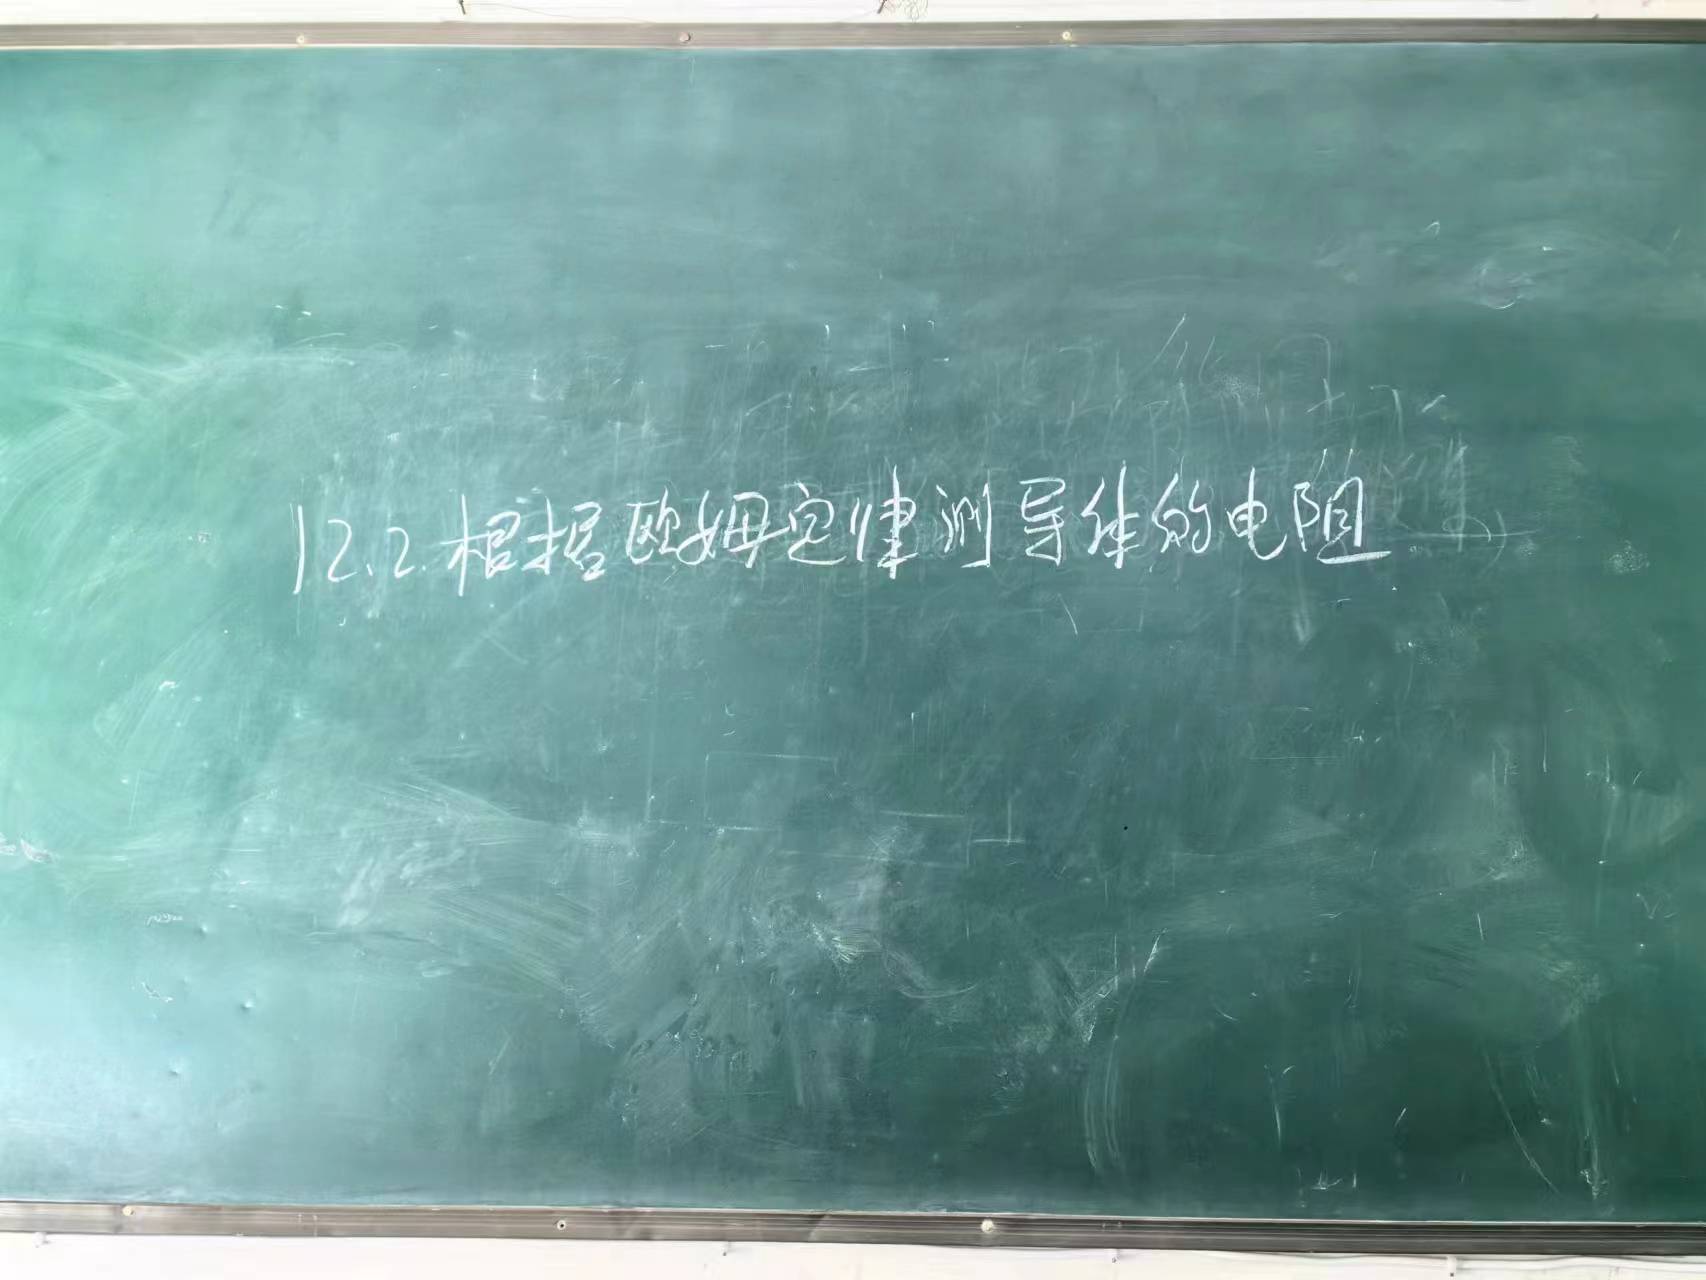 12.2.根据欧姆定律测导体的电阻